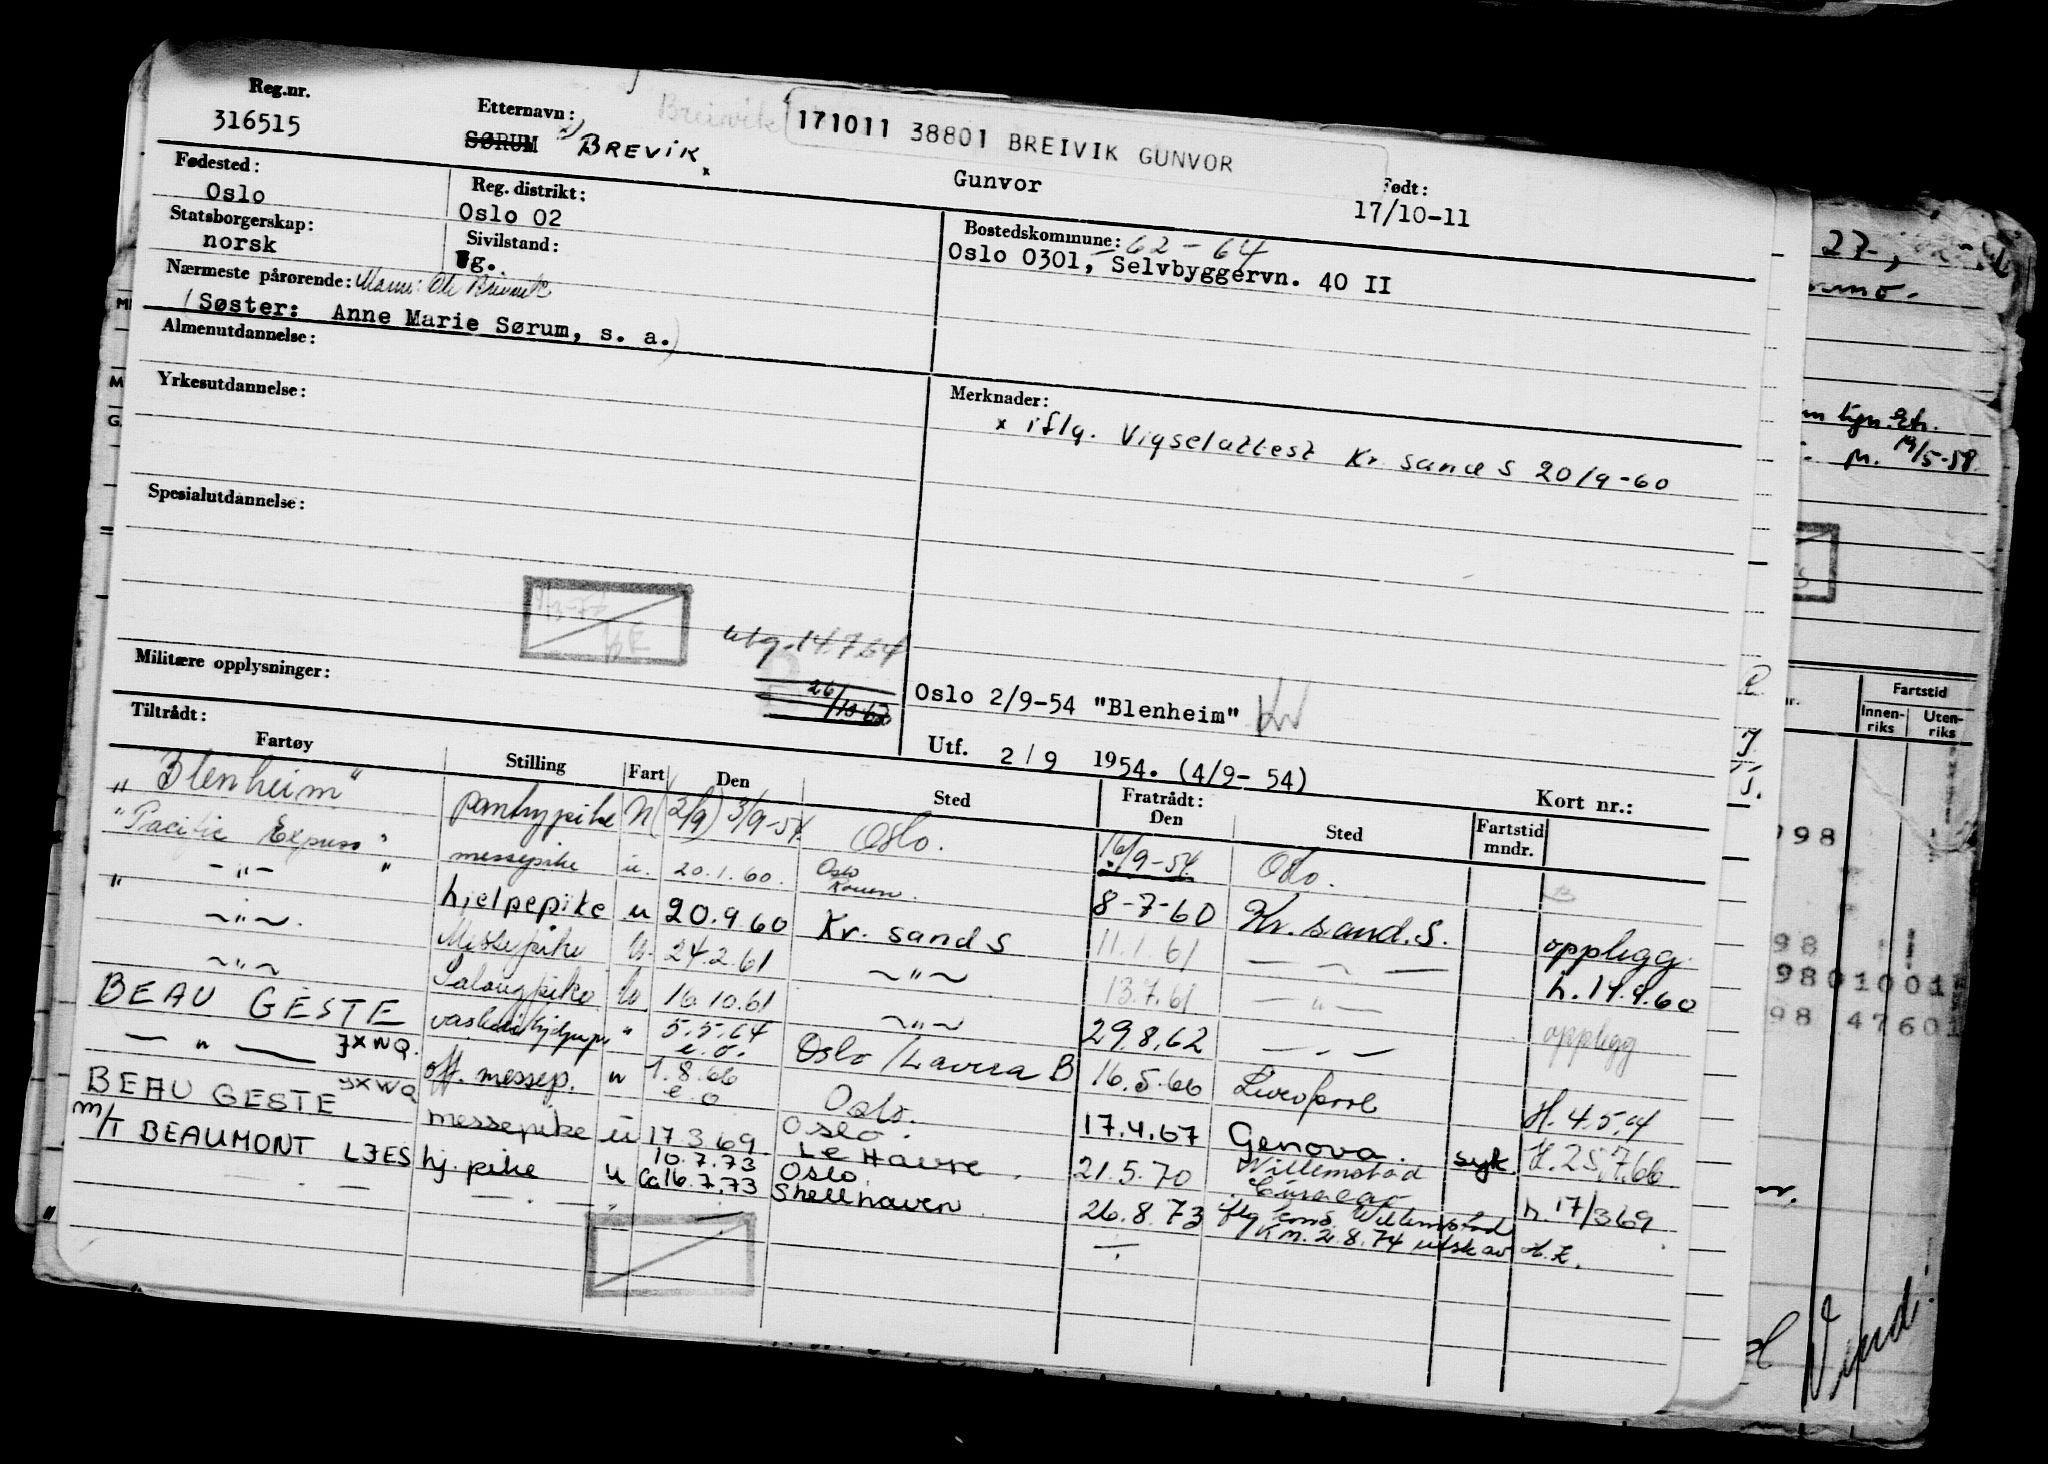 Reg.nr.
316515
Etternavn:
SØRUM BREVIK x
Breivik
171011 38801 BREIVIK GUNVOR
Gunvor
Født:
17/10-11
Fødested:
Oslo
Reg. distrikt:
Oslo 02
Bostedskommune: 62-64
Oslo 0301, Selvbyggervn. 40 II
Statsborgerskap:
norsk
Sivilstand:
g.
Nærmeste pårørende: Mann: Ole Breivik
(Søster: Anne Marie Sørum, s. a.)
Almenutdannelse:
Yrkesutdannelse:
Merknader:
x iflg. Vigselattest Kr. sand S 20/9-60
Spesialutdannelse:
utg. 14.7.64
26/10-62
Militære opplysninger:
Oslo 2/9-54 "Blenheim"
Utf. 2/9 1954. (4/9-54)
Kort nr.:
Tiltrådt:
Fartøy Stilling Fart Den Sted Fratrådt: Den Sted Fartstid mndr.
"Blenheim" pantrypike N (2/9) 3/9-54 Oslo. 16/9-54 Oslo.
"Pacific Express" messepike u. 20.1.60. Oslo Rouen 8-7-60 Kr. sand. S. opplegg
" -"- " hjelpepike u 20.9.60 Kr. sand S 11.1.61 — " — h. 19.9.60
-"- Messepike U. 24.2.61 -"- 13.7.61 — " — opplegg
-"- Salongpike U 16.10.61 -"- 29.8.62 — " —
BEAU GESTE JXWQ. " 5.5.64 e.o. Oslo/Lavera B 16.5.66 Liverpool H. 4.5.64
— " — off. messep. " 1.8.66 e.o Oslo. 17.4.67 Genova. syk. H. 25.7.66
BEAU GESTE JXWQ messepike u 17.3.69 Oslo. Le Havre 21.5.70 Willemstad Curacao h. 17/3 69
M/T BEAUMONT LJES hj. pike u 10.7.73 Ca 16.7.73 Oslo Shellhaven 26.8.73 iflg. Willemstad
K M. 2.8.74 utsk av
27,
19/5-58.
Fartstid
Innen-riks
Uten-riks
998
98
9801001
98 4760